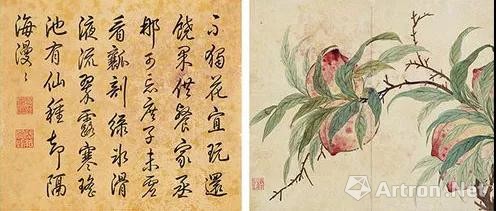 不獨花宜玩還
饒果供餐家丞
那可忘庶子未虛
看瓤剖綠冰滑
液流翠露寒瑤
池有仙種却隔
海漫〻
Artron.Net